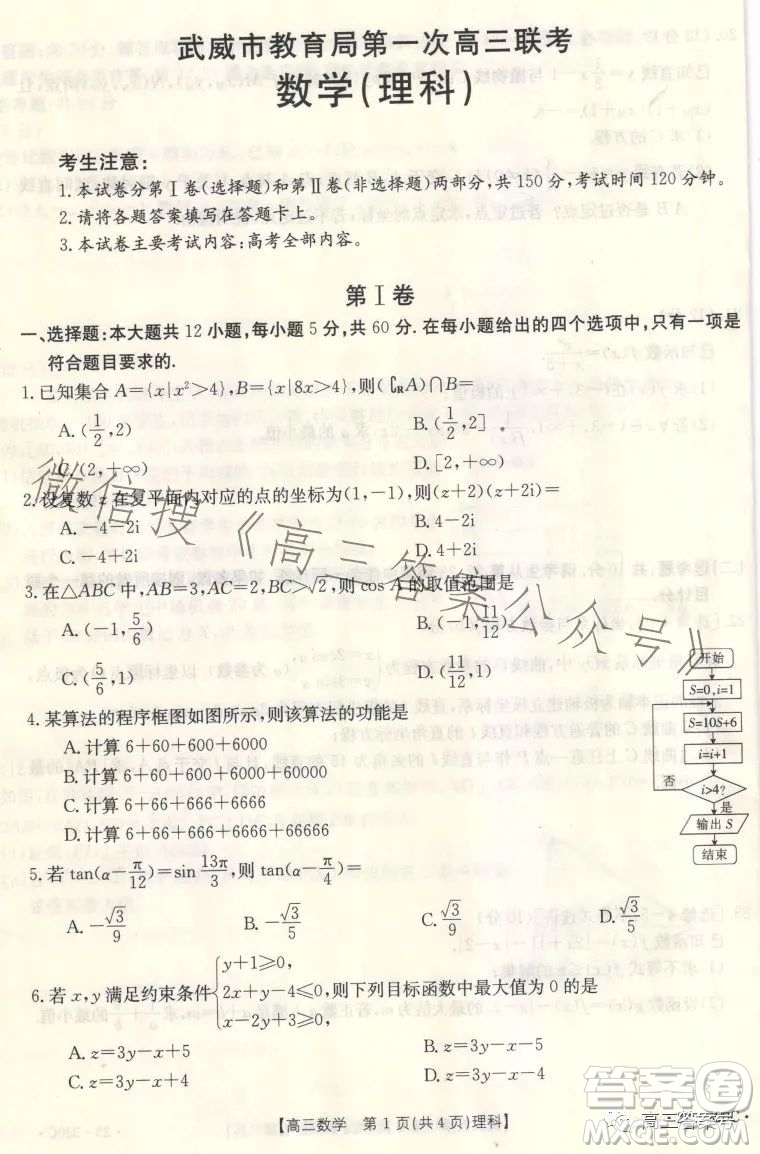 武威市教育局第一次高三联考
数学(理科)
考生注意:
1.本试卷分第Ⅰ卷(选择题)和第Ⅱ卷(非选择题)两部分,共 150 分,考试时间 120 分钟.
2.请将各题答案填写在答题卡上.
3.本试卷主要考试内容:高考全部内容.
第Ⅰ卷
一、选择题:本大题共 12 小题,每小题 5 分,共 60 分.在每小题给出的四个选项中,只有一项是
符合题目要求的.
1.已知集合 A={x|x²>4},B={x|8x>4},则(∁RA)∩B=
A.(1/2,2) B.(1/2,2]
C.(2,+∞) D.[2,+∞)
2.设复数 z 在复平面内对应的点的坐标为(1,-1),则(z+2)(z+2i)=
A.-4-2i B.4-2i
C.-4+2i D.4+2i
3.在△ABC 中,AB=3,AC=2,BC>√2,则 cos A 的取值范围是
A.(-1,5/6) B.(-1,11/12)
C.(5/6,1) D.(11/12,1)
4.某算法的程序框图如图所示,则该算法的功能是
A.计算 6+60+600+6000
B.计算 6+60+600
C.计算 6+66+666+6666
D.计算 6+66+666+6666+66666
开始
S=0,i=1
S=10S+6
i=i+1
否
i>4?
是
输出 S
结束
5.若 tan(α-π/12)=sin 13π/3,则 tan(α-π/4)=
A.-√3/9 B.-√3/5 C.√3/9 D.√3/5
6.若 x,y 满足约束条件{y+1≥0,
2x+y-4≤0,
x-2y+3≥0,
则下列目标函数中最大值为 0 的是
A.z=3y-x+5 B.z=3y-x
C.z=3y-x-5
【高三数学 第 1 页(共 4 页)理科】
微信搜《高三答案公众号》
高三答案号